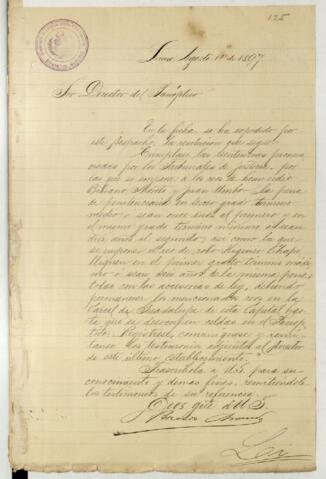 125
Lima Agosto 1º de 1897
Sor Director del Panóptico
En la fecha, se ha expedido por
este Despacho, la resolución que sigue:
"Cúmplase las sentencias pronun-
ciadas por los Tribunales de justicia, por
las que se impone a los reos de homicidio
y Juan la pena
de penitenciaría en tercer grado término
medio o sean once años al primero y en
el mismo grado término mínimo o sean
diez años al segundo; y así como la que
se impone al reo de robo Higinio
en el primer grado término máxi-
mo o sean seis años de la misma pena;
todas con las accesorias de ley, debiendo
permanecer los mencionados reos en la
Cárcel de Guadalupe de esta Capital has-
ta que se desocupen celdas en el Panóp-
tico. Regístrese, comuníquese y remí-
tanse los testimonios al Director
de este último establecimiento."
Trascríbola a US. para su
conocimiento y demás fines, remitiéndole
los testimonios de su referencia.
Dios gue. á US.